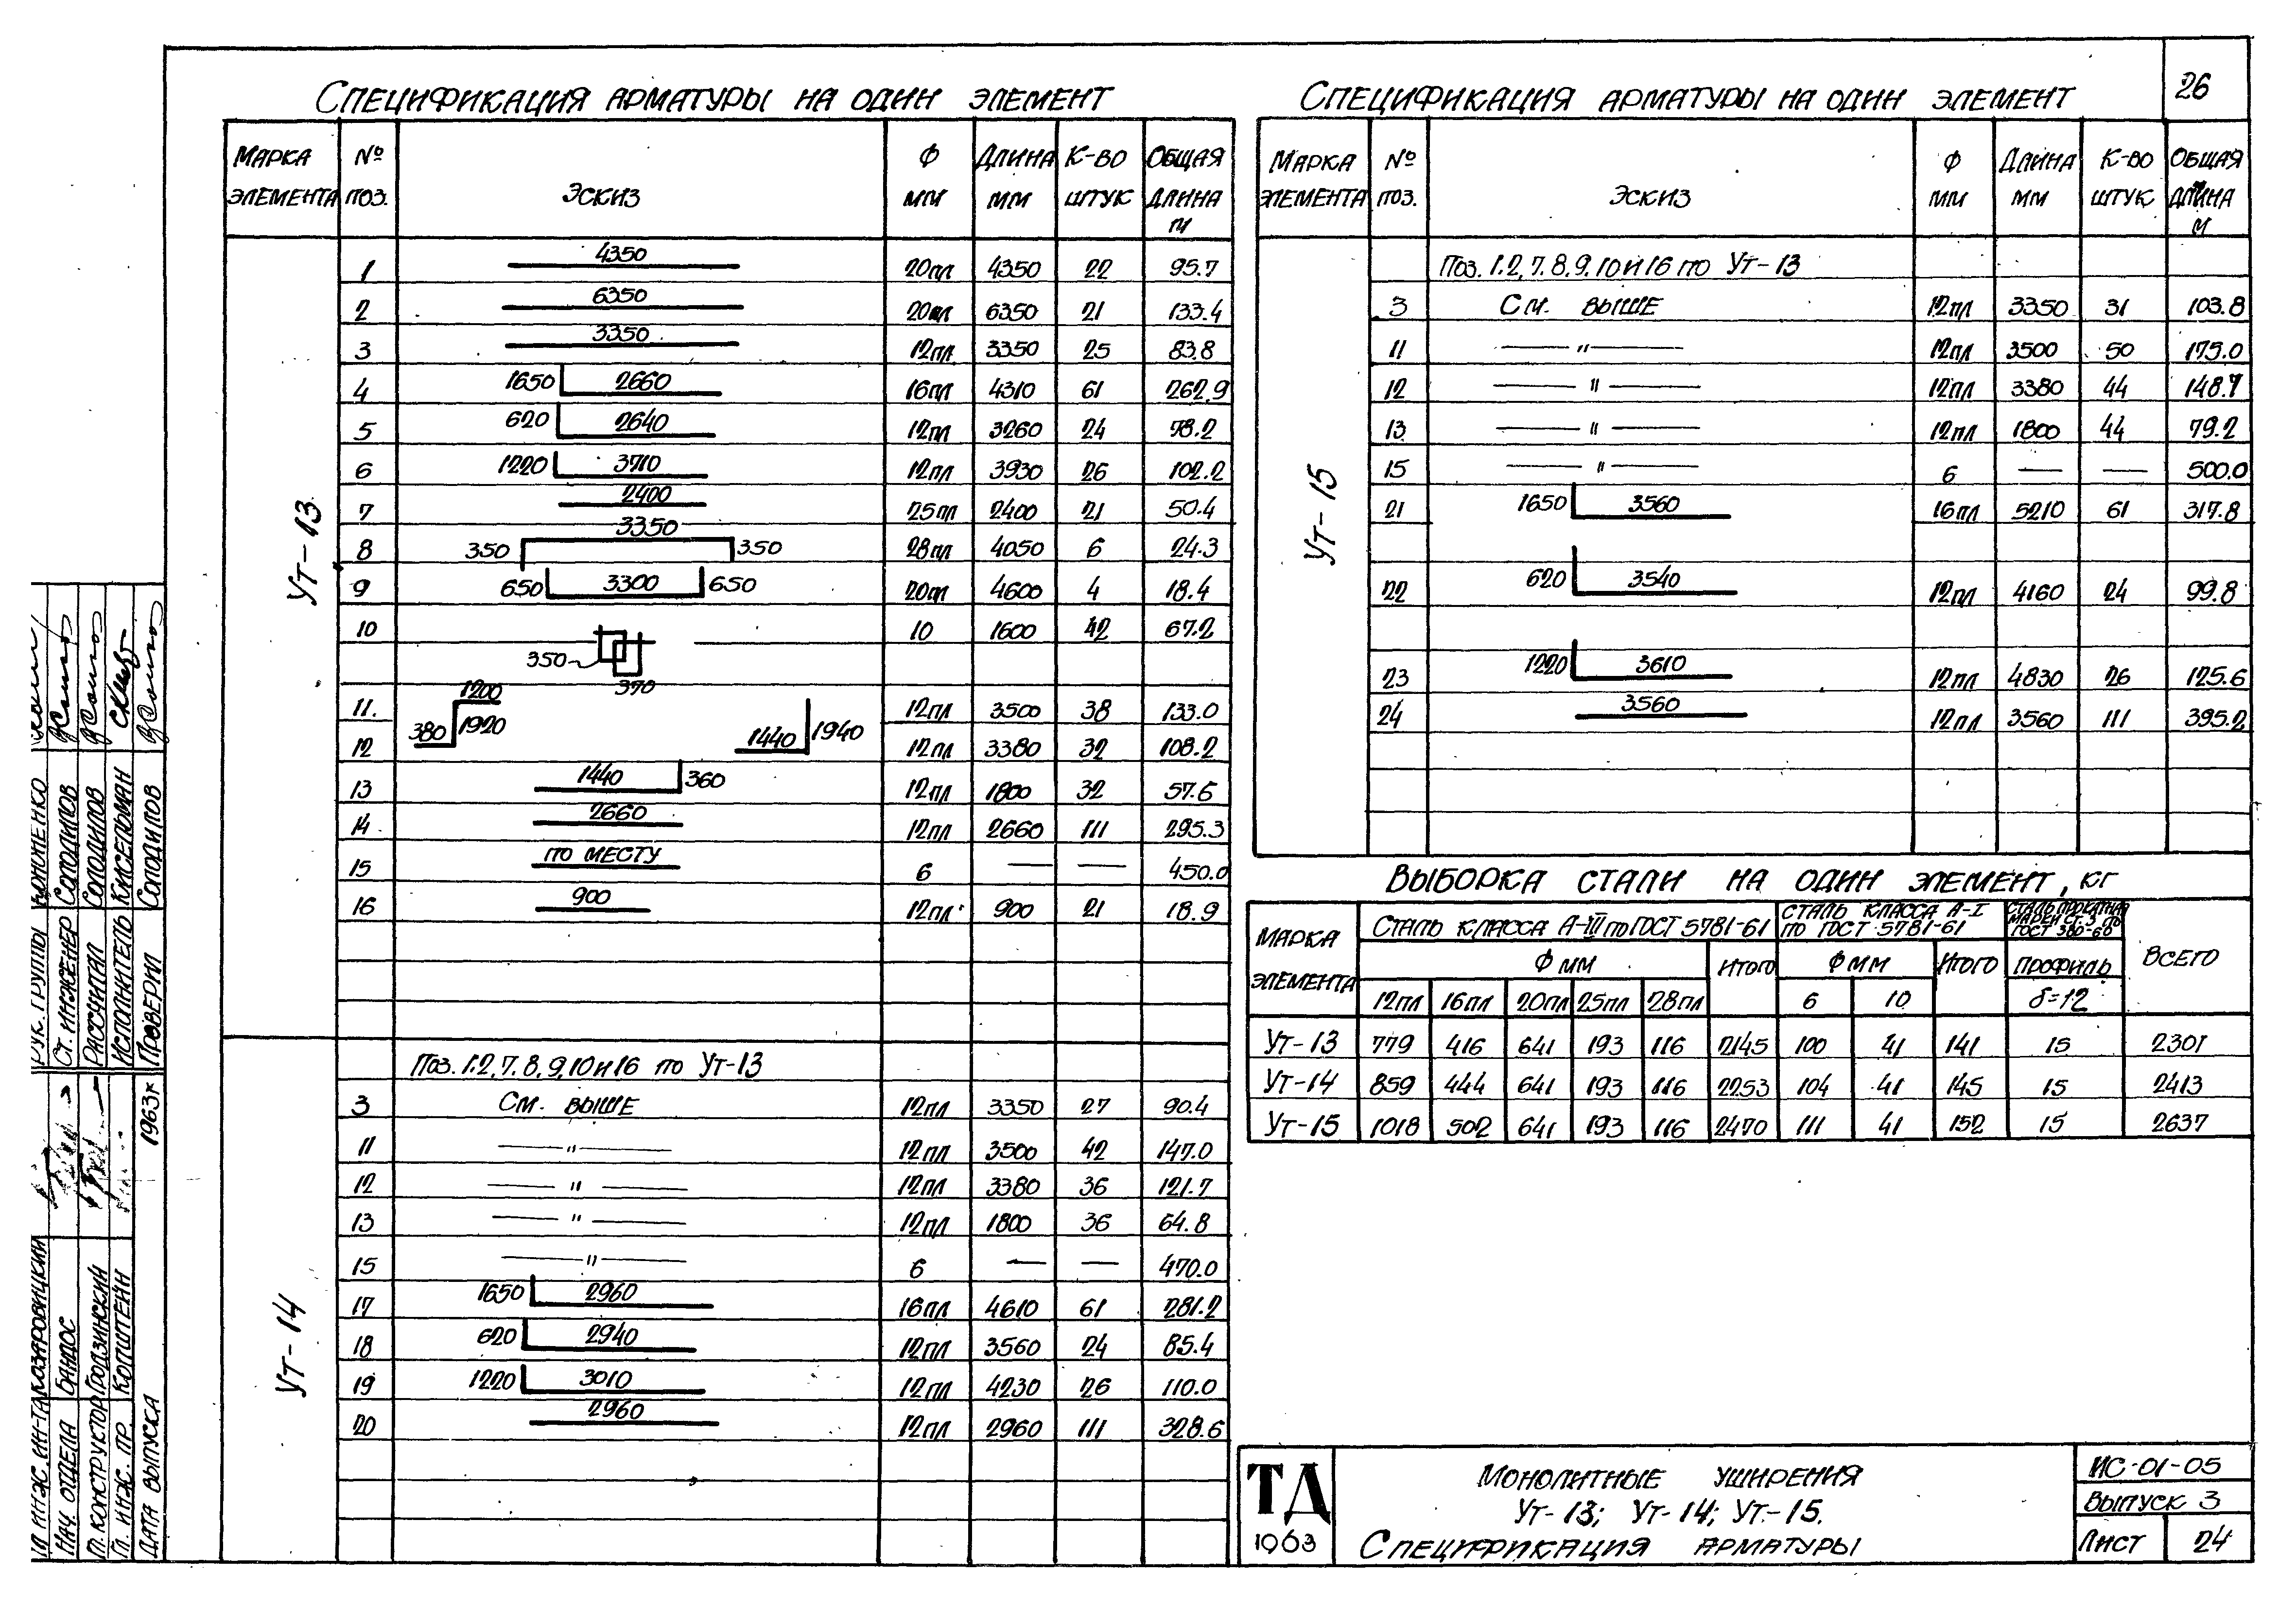 26
Спецификация арматуры на один элемент
Марка элемента № поз. Эскиз Ф мм Длина мм К-во штук Общая длина м
Ут-13
1 4350 20пл 4350 22 95.7
2 6350 20пл 6350 21 133.4
3 3350 12пл 3350 25 83.8
4 1650 2660 16пл 4310 61 262.9
5 620 2640 12пл 3260 24 78.2
6 1220 3710 12пл 3930 26 102.2
7 2400 25пл 2400 21 50.4
8 350 3350 350 28пл 4050 6 24.3
9 650 3300 650 20пл 4600 4 18.4
10 350 370 10 1600 42 67.2
11. 380 1200 1920 12пл 3500 38 133.0
12 1440 1940 12пл 3380 32 108.2
13 1440 360 12пл 1800 32 57.6
14 2660 12пл 2660 111 295.3
15 по месту 6 — — 450.0
16 900 12пл 900 21 18.9
Ут-14
Поз. 1.2, 7. 8, 9, 10 и 16 по Ут-13
3 См. выше 12пл 3350 27 90.4
11 — " — 12пл 3500 42 147.0
12 — " — 12пл 3380 36 121.7
13 — " — 12пл 1800 36 64.8
15 — " — 6 — — 470.0
17 1650 2960 16пл 4610 61 281.2
18 620 2940 12пл 3560 24 85.4
19 1220 3010 12пл 4230 26 110.0
20 2960 12пл 2960 111 328.6
Спецификация арматуры на один элемент
Марка элемента № поз. Эскиз Ф мм Длина мм К-во штук Общая длина м
Ут-15
Поз. 1.2, 7. 8, 9. 10 и 16 по Ут-13
3 См. выше 12пл 3350 31 103.8
11 — " — 12пл 3500 50 175.0
12 — " — 12пл 3380 44 148.7
13 — " — 12пл 1800 44 79.2
15 — " — 6 — — 500.0
21 1650 3560 16пл 5210 61 317.8
22 620 3540 12пл 4160 24 99.8
23 1220 3610 12пл 4830 26 125.6
24 3560 12пл 3560 111 395.2
Выборка стали на один элемент, кг
Марка элемента Сталь класса А-III по ГОСТ 5781-61 Сталь класса А-I по ГОСТ 5781-61 Сталь прокатная марки Ст. 3 по ГОСТ 380-60 Всего
Ф мм Итого Ф мм Итого Профиль
12пл 16пл 20пл 25пл 28пл 6 10 δ=12
Ут-13 779 416 641 193 116 2145 100 41 141 15 2301
Ут-14 859 444 641 193 116 2253 104 41 145 15 2413
Ут-15 1018 502 641 193 116 2470 111 41 152 15 2637
ТД
1963
Монолитные уширения
Ут-13; Ут-14; Ут-15.
Спецификация арматуры
ИС-01-05
Выпуск 3
Лист 24
Рук. группы Кононенко
Ст. инженер Солодилов
Рассчитал Солодилов
Исполнитель Кисельман
Проверил Солодилов
Гл инж. ин-та Казаровицкий
Нач. отдела Бандос
Гл. конструктор Гродзинский
Гл. инж. пр. Копштейн
Дата выпуска 1963г